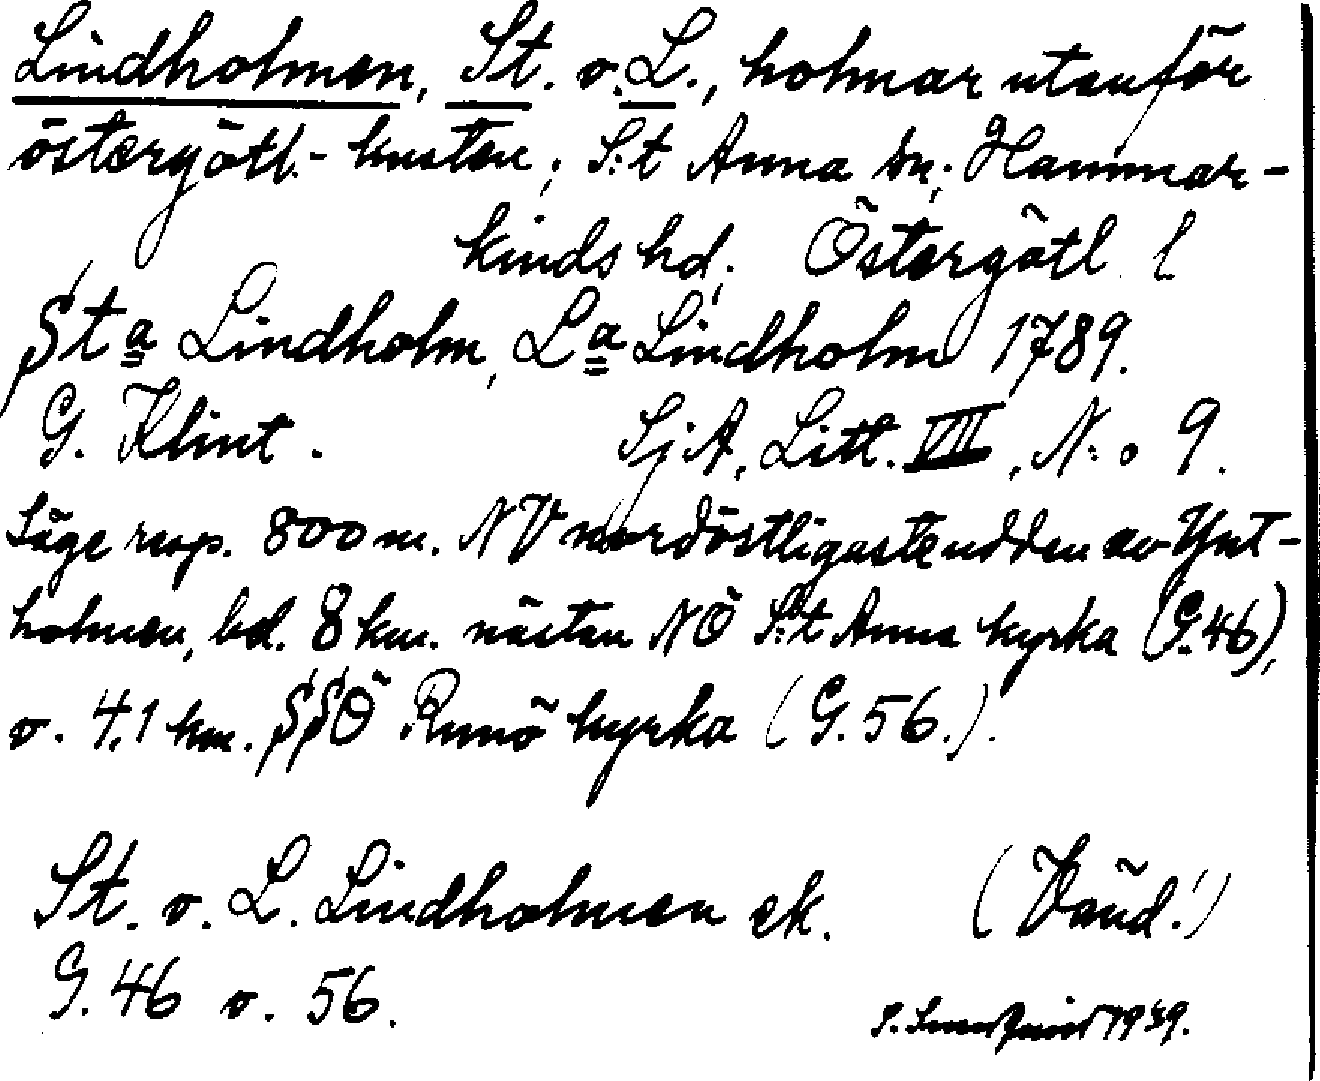 Lindholmen, St. o. L., holmar utanför
östergötl.-kusten; S:t Anna sn; Hammar-
kinds hd; Östergötl l
Sta Lindholm, La Lindholm 1789.
G. Klint. SjA, Litt. VII, N:o 9.
Läge resp. 800 m. NV nordöstligaste udden av Ynt-
holmen, bd. 8 km. nästan NÖ S:t Anna kyrka (G. 46),
o. 4,1 km. SSÖ Rumö kyrka (G. 56.).
St. o. L. Lindholmen ek. (Vänd!)
G. 46 o. 56.
1939.